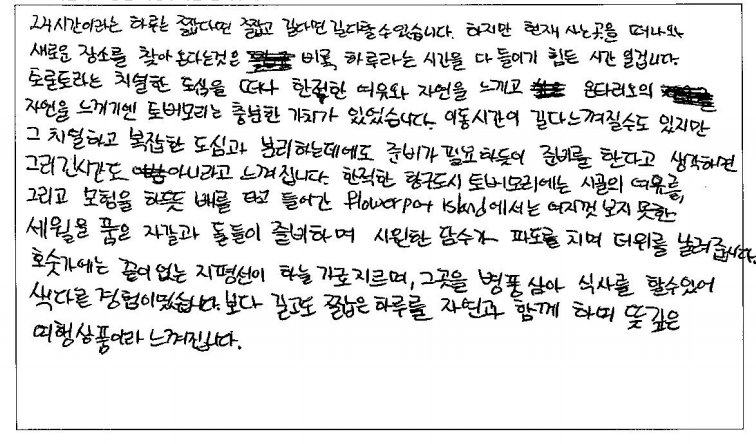 24시간이라는 하루는 짧다면 짧고 길다면 길다할수있습니다. 하지만 현재 사는곳을 떠나와
새로운 장소를 찾아온다는것은 비록, 하루라는 시간을 다 들이기 힘든 시간 일겁니다.
토론토라는 치열한 도심을 떠나 한적한 여유와 자연을 느끼고 온타리오의
자연을 느끼기엔 토버모리는 충분한 가치가 있었습니다. 이동시간이 길다느껴질수도 있지만
그 치열하고 복잡한 도심과 분리하는데에도 준비가 필요하듯이 준비를 한다고 생각하면
그리 긴시간도 아니라고 느껴집니다. 한적한 항구도시 토버모리에는 시골의 여유를,
그리고 모험을 하듯 배를 타고 들어간 flowerpot island에서는 여지껏 보지 못한
세월을 품은 자갈과 돌들이 즐비하며 시원한 담수가 파도를 치며 더위를 날려줍니다.
호숫가에는 끝이 없는 지평선이 하늘 가로지르며, 그곳을 병풍 삼아 식사를 할수있어
색다른 경험이였습니다. 보다 길고도 짧은 하루를 자연과 함께 하며 뜻깊은
여행상품이라 느껴집니다.